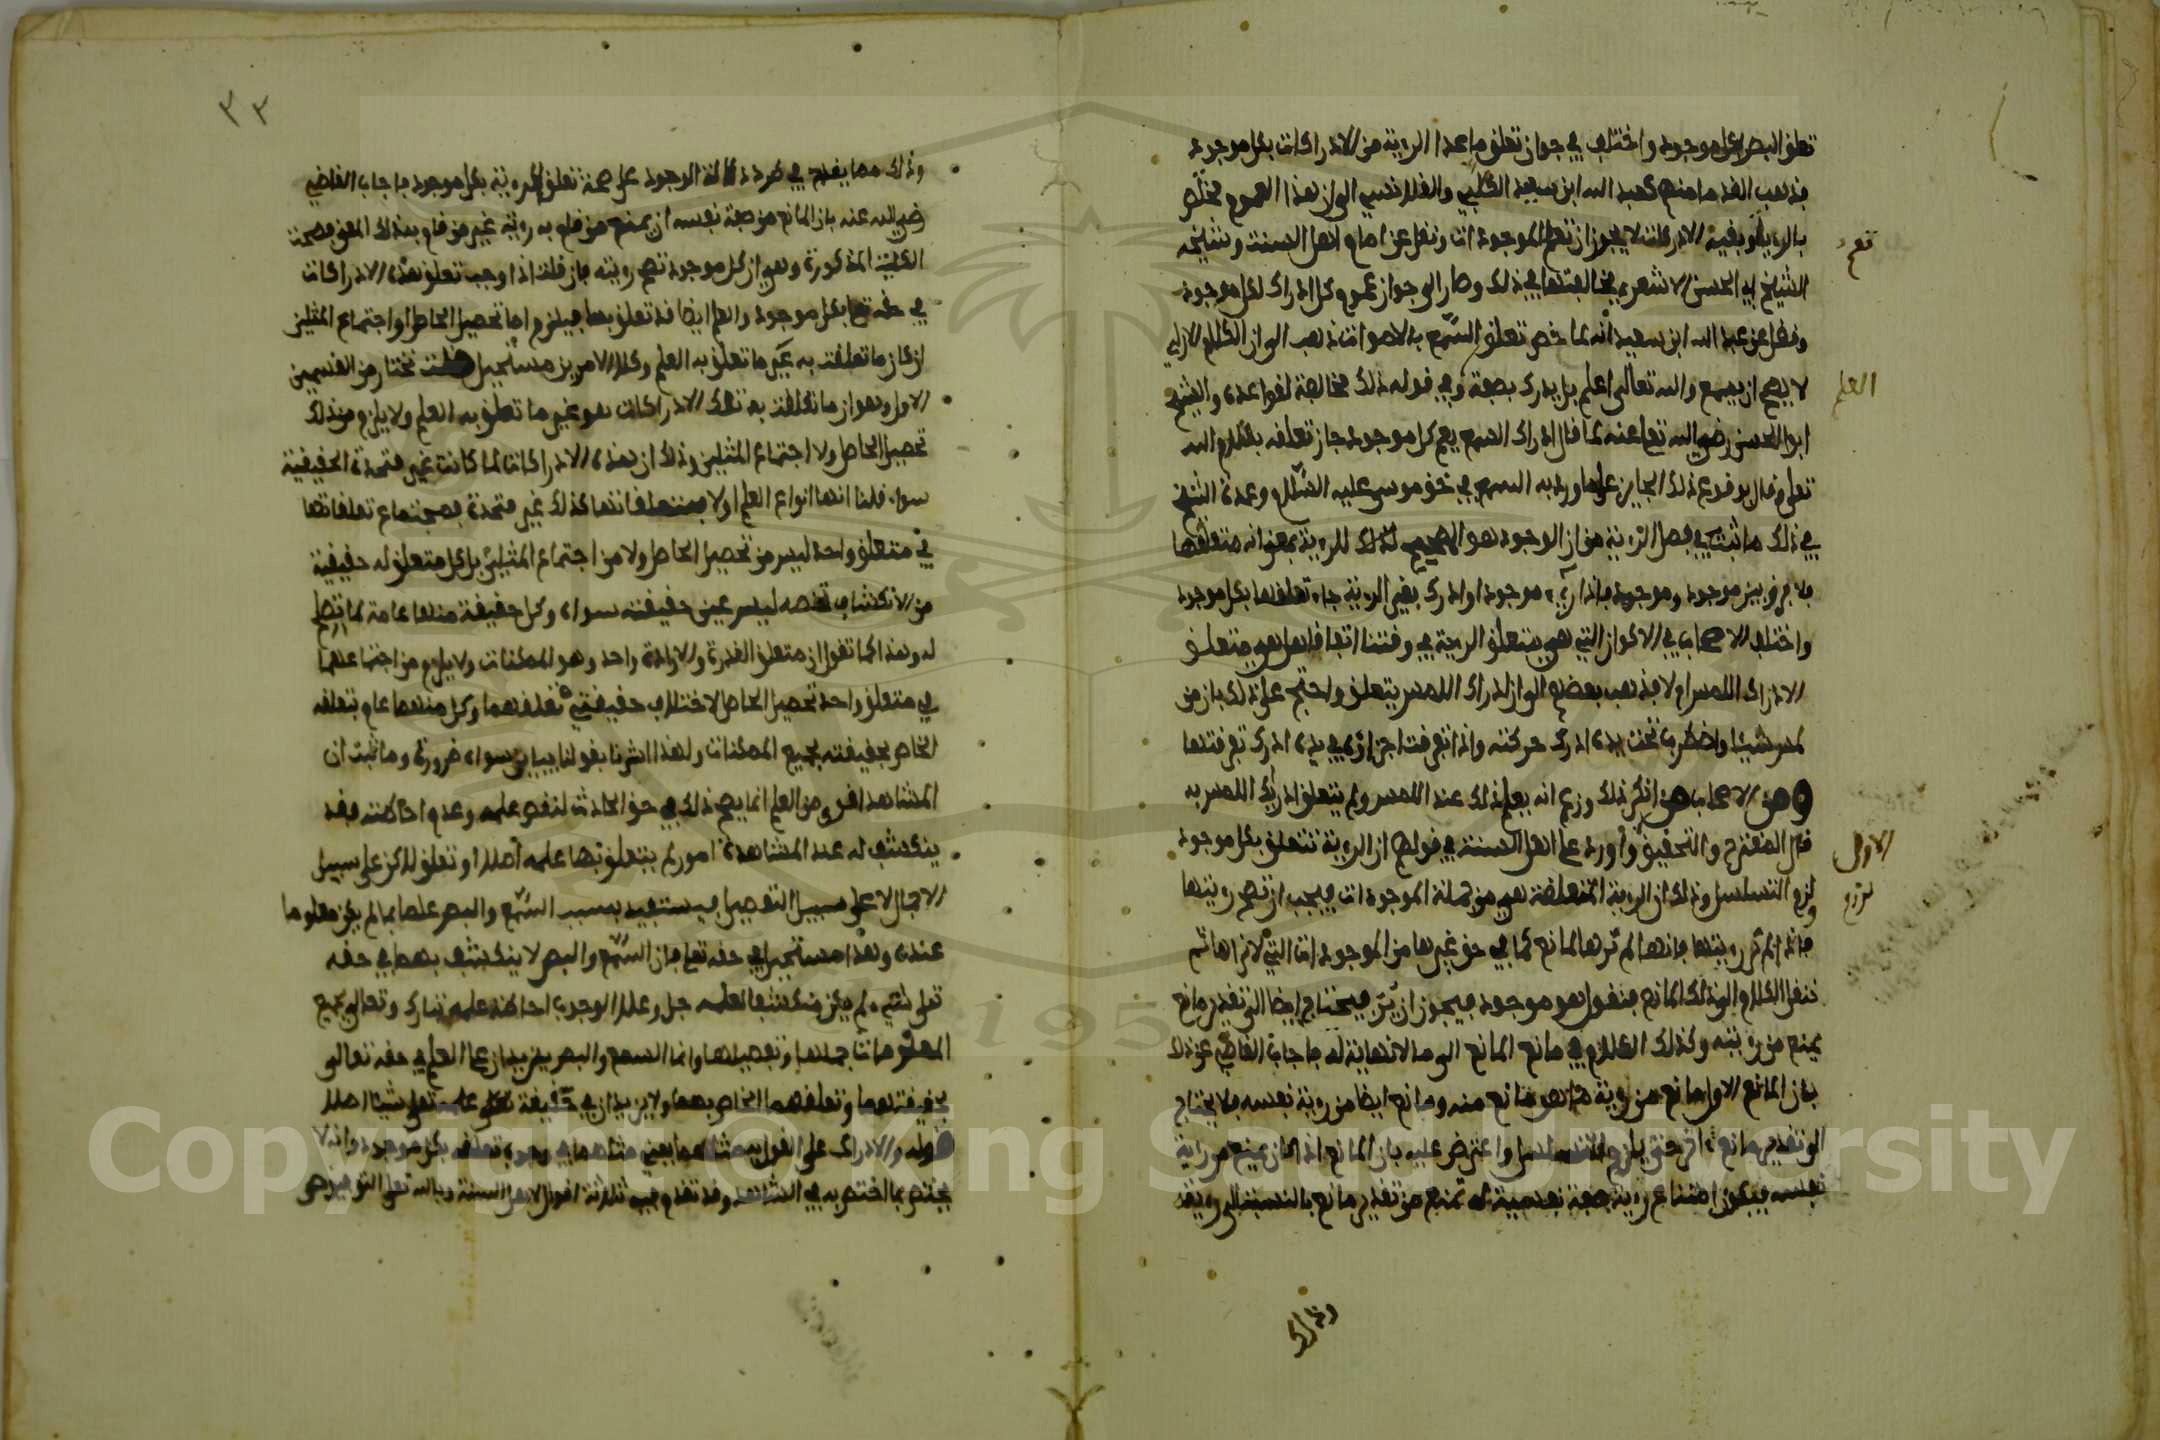 تعلق البصر بكل موجود واختلف في جواز تعلق ما عدا الرؤية من الادراكات بكل موجود
فذهب القدماء منهم كعبد الله ابن سعيد الكلابي والقلانسي الى ان هذا العموم مختص
بالرؤية وبقية الادراكات لا يجوز ان تعم الموجودات ونقل عن امام اهل السنة وشيخه
الشيخ ابي الحسن الاشعري مخالفتهما في ذلك وصار الى جواز عموم كل ادراك لكل موجود
ونقل عن عبد الله ابن سعيد انه لما خص تعلق السمع بالاصوات ذهب الى ان الكلام الازلي
لا يصح ان يسمع والله تعالى اعلم بل يدرك بصفة وفي قوله ذلك مخالفة لقواعده والشيخ
ابو الحسن رضي الله تعالى عنه لما قال ادراك السمع يعم كل موجود جاز تعلقه بكلام الله
تعلى وقال بوقوع ذلك الجايز على ما ورد به السمع في حق موسى عليه السلام وعمدة الشيخ
في ذلك ما ثبت في فصل الرؤية من ان الوجود هو المصحح للرؤية بمعنى انه متعلقها
فلا فرق بين موجود وموجود فاذا رءي موجود او ادرك بغير الرؤية جاء تعلقها بكل موجود
واختلف الاصحاب في الاكوان التي هي متعلق الرؤية في وقتنا اتفاقا هل هي متعلق
الادراك اللمس ام لا فذهب بعضهم الى ان ادراك اللمس يتعلق واحتج على ذلك بان من
لمس شيئا واضطرب تحت يده ادرك حركته واذا تفرقت اجزاؤه في يده ادرك تفرقتها
ومن الاصحاب من انكر ذلك وزعم انه يعلم ذلك عند اللمس ولم يتعلق ادراك اللمس به
قال المقترح والتحقيق الاول وأورد على اهل السنة في قولهم ان الرؤية تتعلق بكل موجود
لزوم التسلسل وذلك ان الرؤية المتعلقة هي من جملة الموجودات فيجب ان تصح رؤيتها
فاذا لم تر رؤيتها فانها لم ترها لمانع كما في حق غيرها من الموجودات التي لا نراها ثم
ننقل الكلام الى ذلك المانع فنقول هو موجود فيجوز ان يرى فيحتاج ايضا الى تقدير مانع
يمنع من رؤيته وكذلك الكلام في مانع المانع الى ما لا نهاية له فاجاب القاضي عن ذلك
بان المانع الاول مانع من رؤية ما هو مانع منه ومانع ايضا من رؤية نفسه فلا يحتاج
الى تقدير مانع اخر حتى يلزم التسلسل واعترض عليه بان المانع اذا كان يمنع من رؤية
نفسه فيكون امتناع رؤيته صفة نفسية له تمنع من تقدير مانع بالنسبة الى رؤيته
وذلك
نعم
العلم
الاول
لزوم
٣٢
وذلك مما يقدح في طرد دلالة الوجود على صحة تعلق الرؤية بكل موجود فاجاب القاضي
رضي الله عنه بان المانع من صفة نفسه ان يمنع من قام به رؤية غير من قام به ذلك المعنى فصحت
الكلية المذكورة وهي ان كل موجود تصح رؤيته فان قلت اذا وجب تعلق هذه الادراكات
في حقه تعلى بكل موجود والعلم ايضا قد تعلق بها فيلزم اما تحصيل الحاصل او اجتماع المثلين
ان كان ما تعلقت به عين ما تعلق به العلم وكلا الامرين مستحيل قلت نختار من القسمين
الاول وهو ان ما تعلقت به تلك الادراكات هو غير ما تعلق به العلم ولا يلزم من ذلك
تحصيل الحاصل ولا اجتماع المثلين وذلك ان هذه الادراكات لما كانت غير متحدة الحقيقية
سواء قلنا انها انواع العلم او لا فمتعلقاتها كذلك غير متحدة فصح اجتماع تعلقاتها
في متعلق واحد ليس من تحصيل الحاصل ولا من اجتماع المثلين بل كل متعلق له حقيقية
من الانكشاف تخصه ليس عين حقيقته سواه وكل حقيقة منها عامة لما تصلح
له وهذا كما تقول ان متعلق القدرة والارادة واحد وهو الممكنات ولا يلزم من اجتماعهما
في متعلق واحد تحصيل الحاصل لاختلاف حقيقتي تعلقهما وكل منهما عام بتعلقه
الخاص بحقيقته لجميع الممكنات ولهذا اشرنا بقولنا يباين سواه ضرورة وما ثبت ان
المشاهد اقوى من العلم انما يصح ذلك في حق الحادث لنقص علمه وعدم احاطته فقد
ينكشف له عند المشاهدة امور لم يتعلق بها علمه اصلا او تعلق لكن على سبيل
الاجمال لا على سبيل التفصيل فيستفيد بسبب السمع والبصر علما بما لم يكن معلوما
عنده وهذا مستحيل في حقه تعلى فان السمع والبصر لا ينكشف بهما في حقه
تعلى شيء لم يكن منكشفا لعلمه جل وعلا لوجوب احاطة علمه تبارك وتعالى بجميع
المعلومات جملتها وتفصيلها وانما السمع والبصر يزيدان على العلم في حقه تعالى
بحقيقتهما وتعلقهما الخاص بهما ولا يزيدان في حقيقة علمه تعلى شيئا اصلا
قوله والادراك على القول به مثلهما يعني مثلهما في وجوب تعلقه بكل موجود وانه لا
يختص بما اختص به في الشاهد وقد تقدم فيه ثلاثة اقوال لاهل السنة وبالله تعلى التوفيق ص